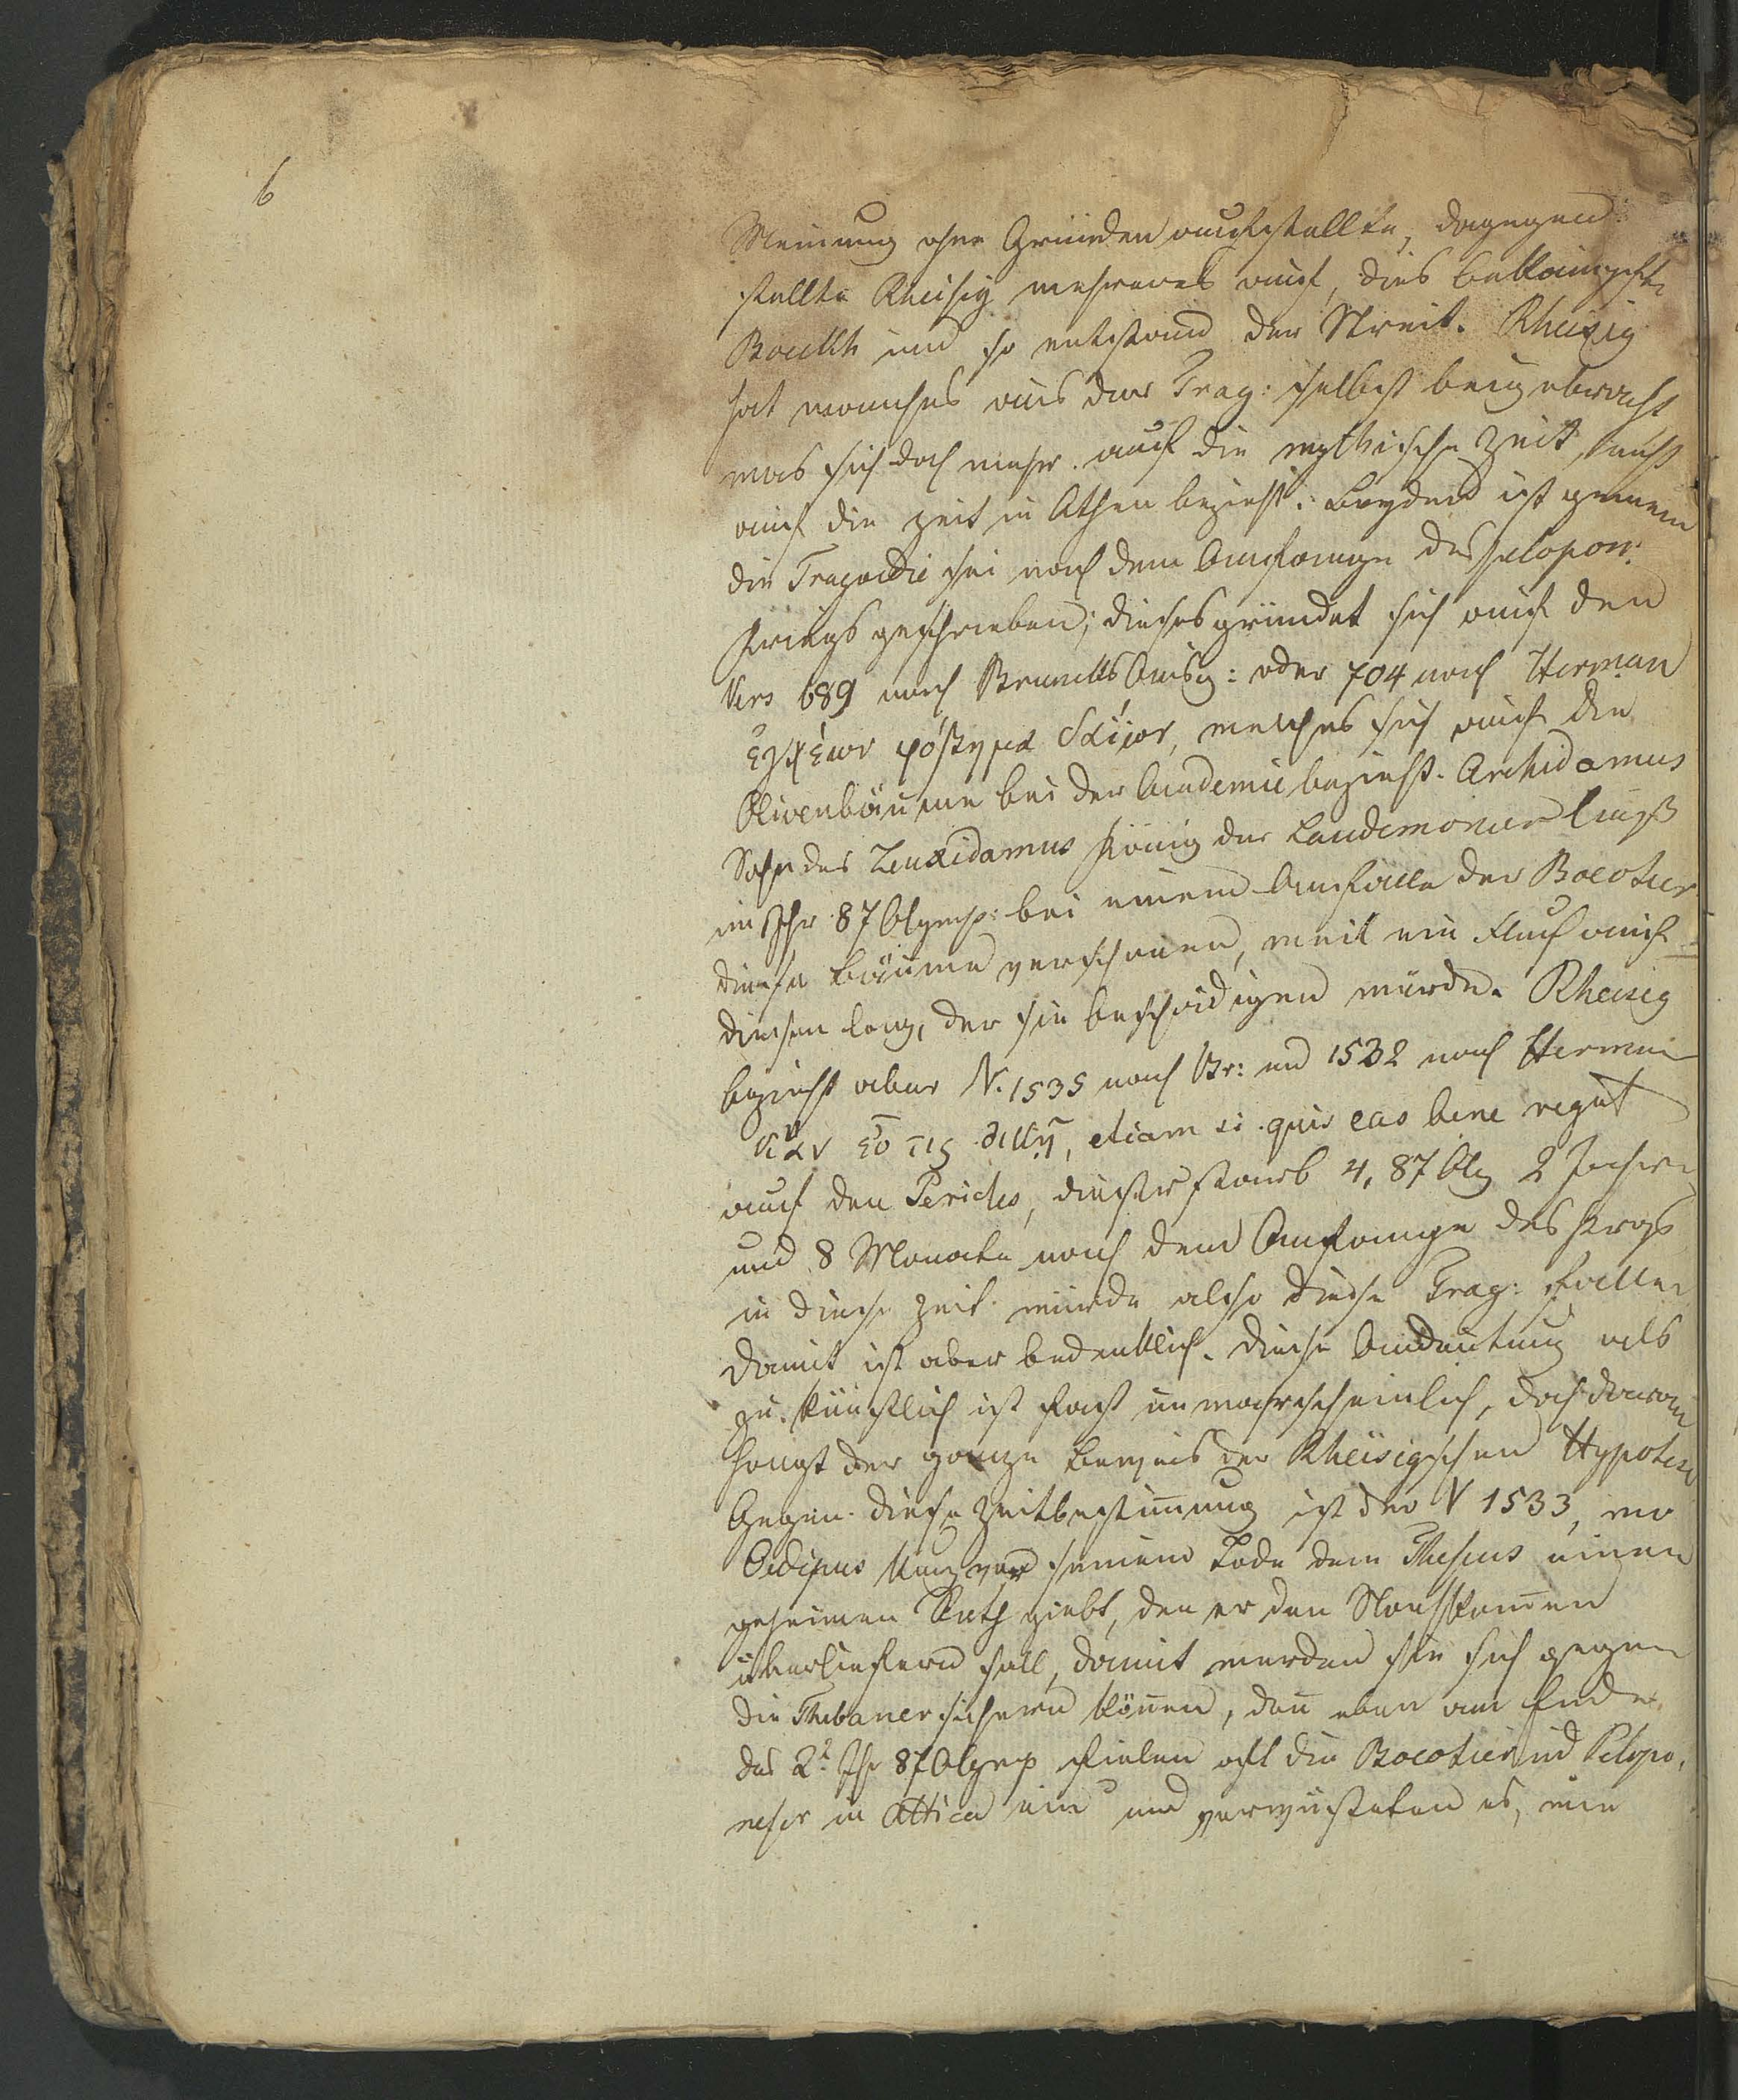 6
Meinung ohne Gründen aufstellte, dagegen
stellte Reisig mehreres auf, dies bekämpfte
Boeckh und so entstand der Streit. Rheisig
hat manches aus der Trag: selbst beigebracht
was sich doch mehr auf die mythische Zeit, als
auf die Zeit in Athen bezieht. Beyden ist gemein
die Tragoedie sei nach dem Anfange des pelopon:
Kriegs geschrieben; dieses gründet sich auf den
Vers 689 nach Brunks Ausg: oder 704 nach Herman
ἐγχέων φόβημα δαΐων, welches sich auf die
Olivenbäume bei der Academie bezieht. Archidamus
Sohn des Zeuxidamus König der Lacedemonier ließ
im Jhr 87 Olymp: bei einem Einfalle der Boeotier
diese Bäume verschonen, weil ein Fluch auf
diesen lag, der sie beschädigen würde. Rheisig
bezieht aber V. 1535 nach Br: und 1532 nach Herman
κἂν εὖ τις οἰκῇ, etiam si quis eas bene regat
auf den Pericles, dieser starb 4, 87 Oly 2 Jahre
und 8 Monate nach dem Anfange des Krgs
in diese Zeit würde also diese Trag: fallen
damit ist aber bedenklich. diese Andeutung als
zu künstlich ist fast unwahrscheinlich, doch daran
hängt der ganze Beweis der Rheisigschen Hypotese
Gegen diese Zeitbestimmung ist der V 1533, wo
Oedipus kurz vor seinem Tode dem Theseus einen
geheimen Rath giebt, den er den Nachkommen
überliefern soll, damit werden sie sich gegen
die Thebaner sichern können, denn eben am Ende
des 2t Jhr 87 Olymp fielen oft die Boeotier und Pelopo,
neser in Attica ein und verwüsteten es, wie